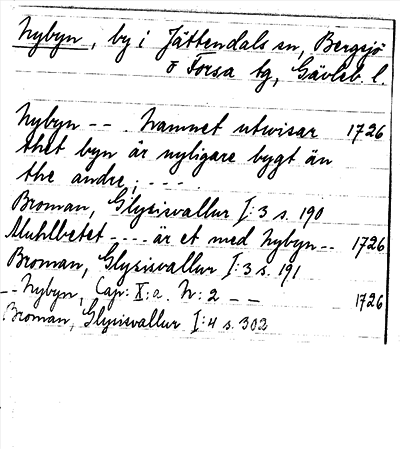 Nybyn, by i Jättendals sn, Bergsjö
o Forsa tg, Gävleb. l.
Nybyn -- . Namnet utwisar 1726
thet byn är nyligare bygt än
the andre; ----
Broman, Glysisvallur I:3 s. 190
Muhlbetet ---- är et med Nybyn -- 1726
Broman, Glysisvallur I:3 s. 191
-- Nybyn, Cap: X: a. N: 2 -- 1726
Broman, Glysisvallur I:4 s. 302